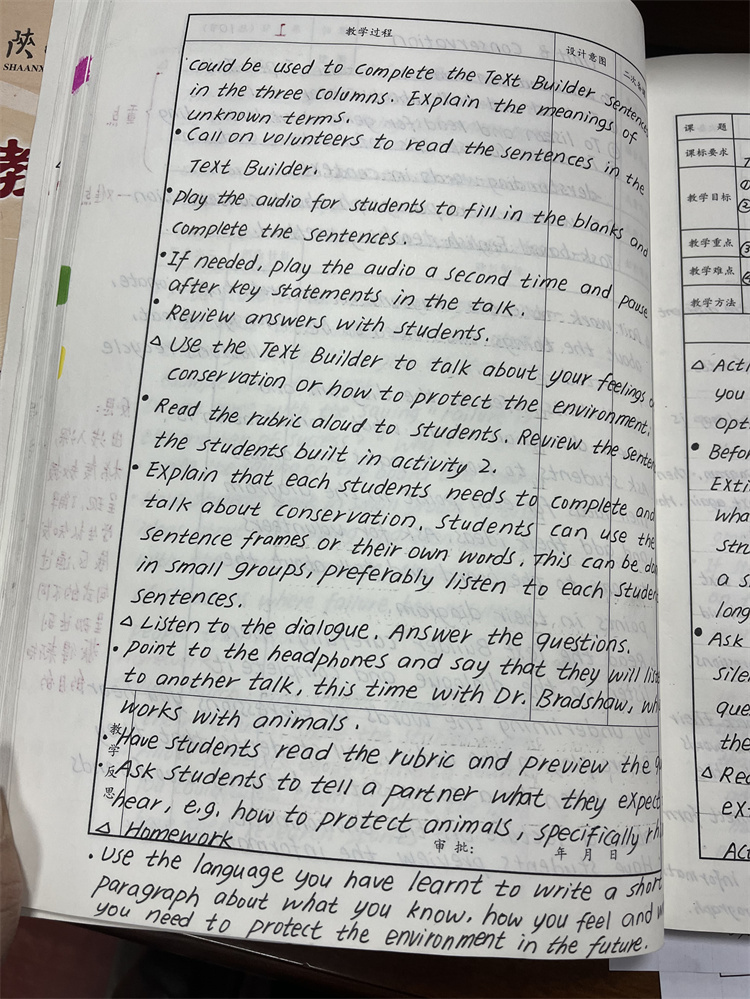 陕
SHAANX
教学过程
I
设计意图
二次备课
could be used to complete the Text Builder sentences
in the three columns. Explain the meanings of
unknown terms.
• Call on volunteers to read the sentences in the
Text Builder.
• Play the audio for students to fill in the blanks and
complete the sentences.
• If needed, play the audio a second time and pause
after key statements in the talk.
• Review answers with students.
△ Use the Text Builder to talk about your feelings
conservation or how to protect the environment.
• Read the rubric aloud to students. Review the senten
the students built in activity 2.
• Explain that each students needs to complete and
talk about conservation. Students can use the
sentence frames or their own words. This can be do
in small groups, preferably listen to each studen
sentences.
△ Listen to the dialogue. Answer the questions.
• Point to the headphones and say that they will list
to another talk, this time with Dr. Bradshaw, wh
works with animals.
教学反思
• Have students read the rubric and preview the q
• Ask students to tell a partner what they expect
hear, e.g. how to protect animals, specifically rh
△ Homework
审批: 年 月 日
• Use the language you have learnt to write a short
paragraph about what you know, how you feel and w
you need to protect the environment in the future.
课 题
课标要求
教学目标
①
②
教学重点
③
教学难点
④
教学方法
△ Acti
you
opti
• Befor
Exti
wha
stru
a s
long
• Ask
siler
que
the
△ Rea
ext
Act